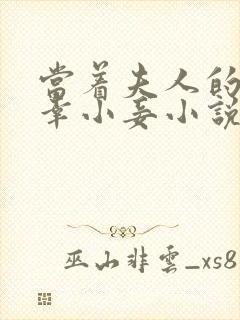 當着夫人的
辜小妾小說
巫山非雲_xs8